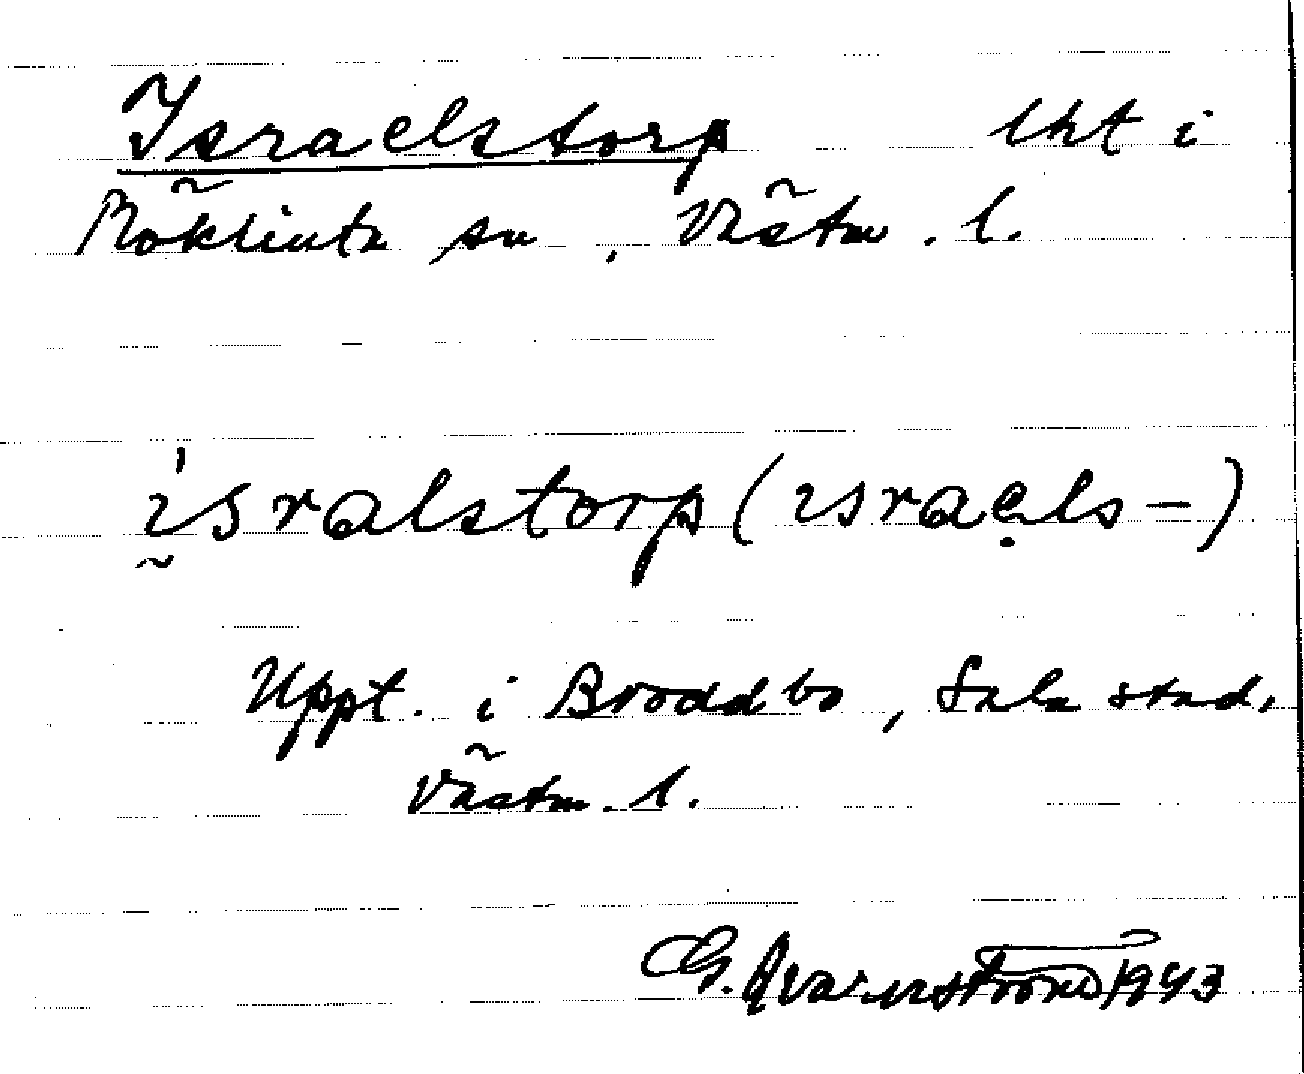 Israelstorp lht i
Möklinta sn, Västm. l.
isralstorp (israels-)
Uppt. i Broddbo, Sala stad,
Västm. l.
G. Qvarnström 1943